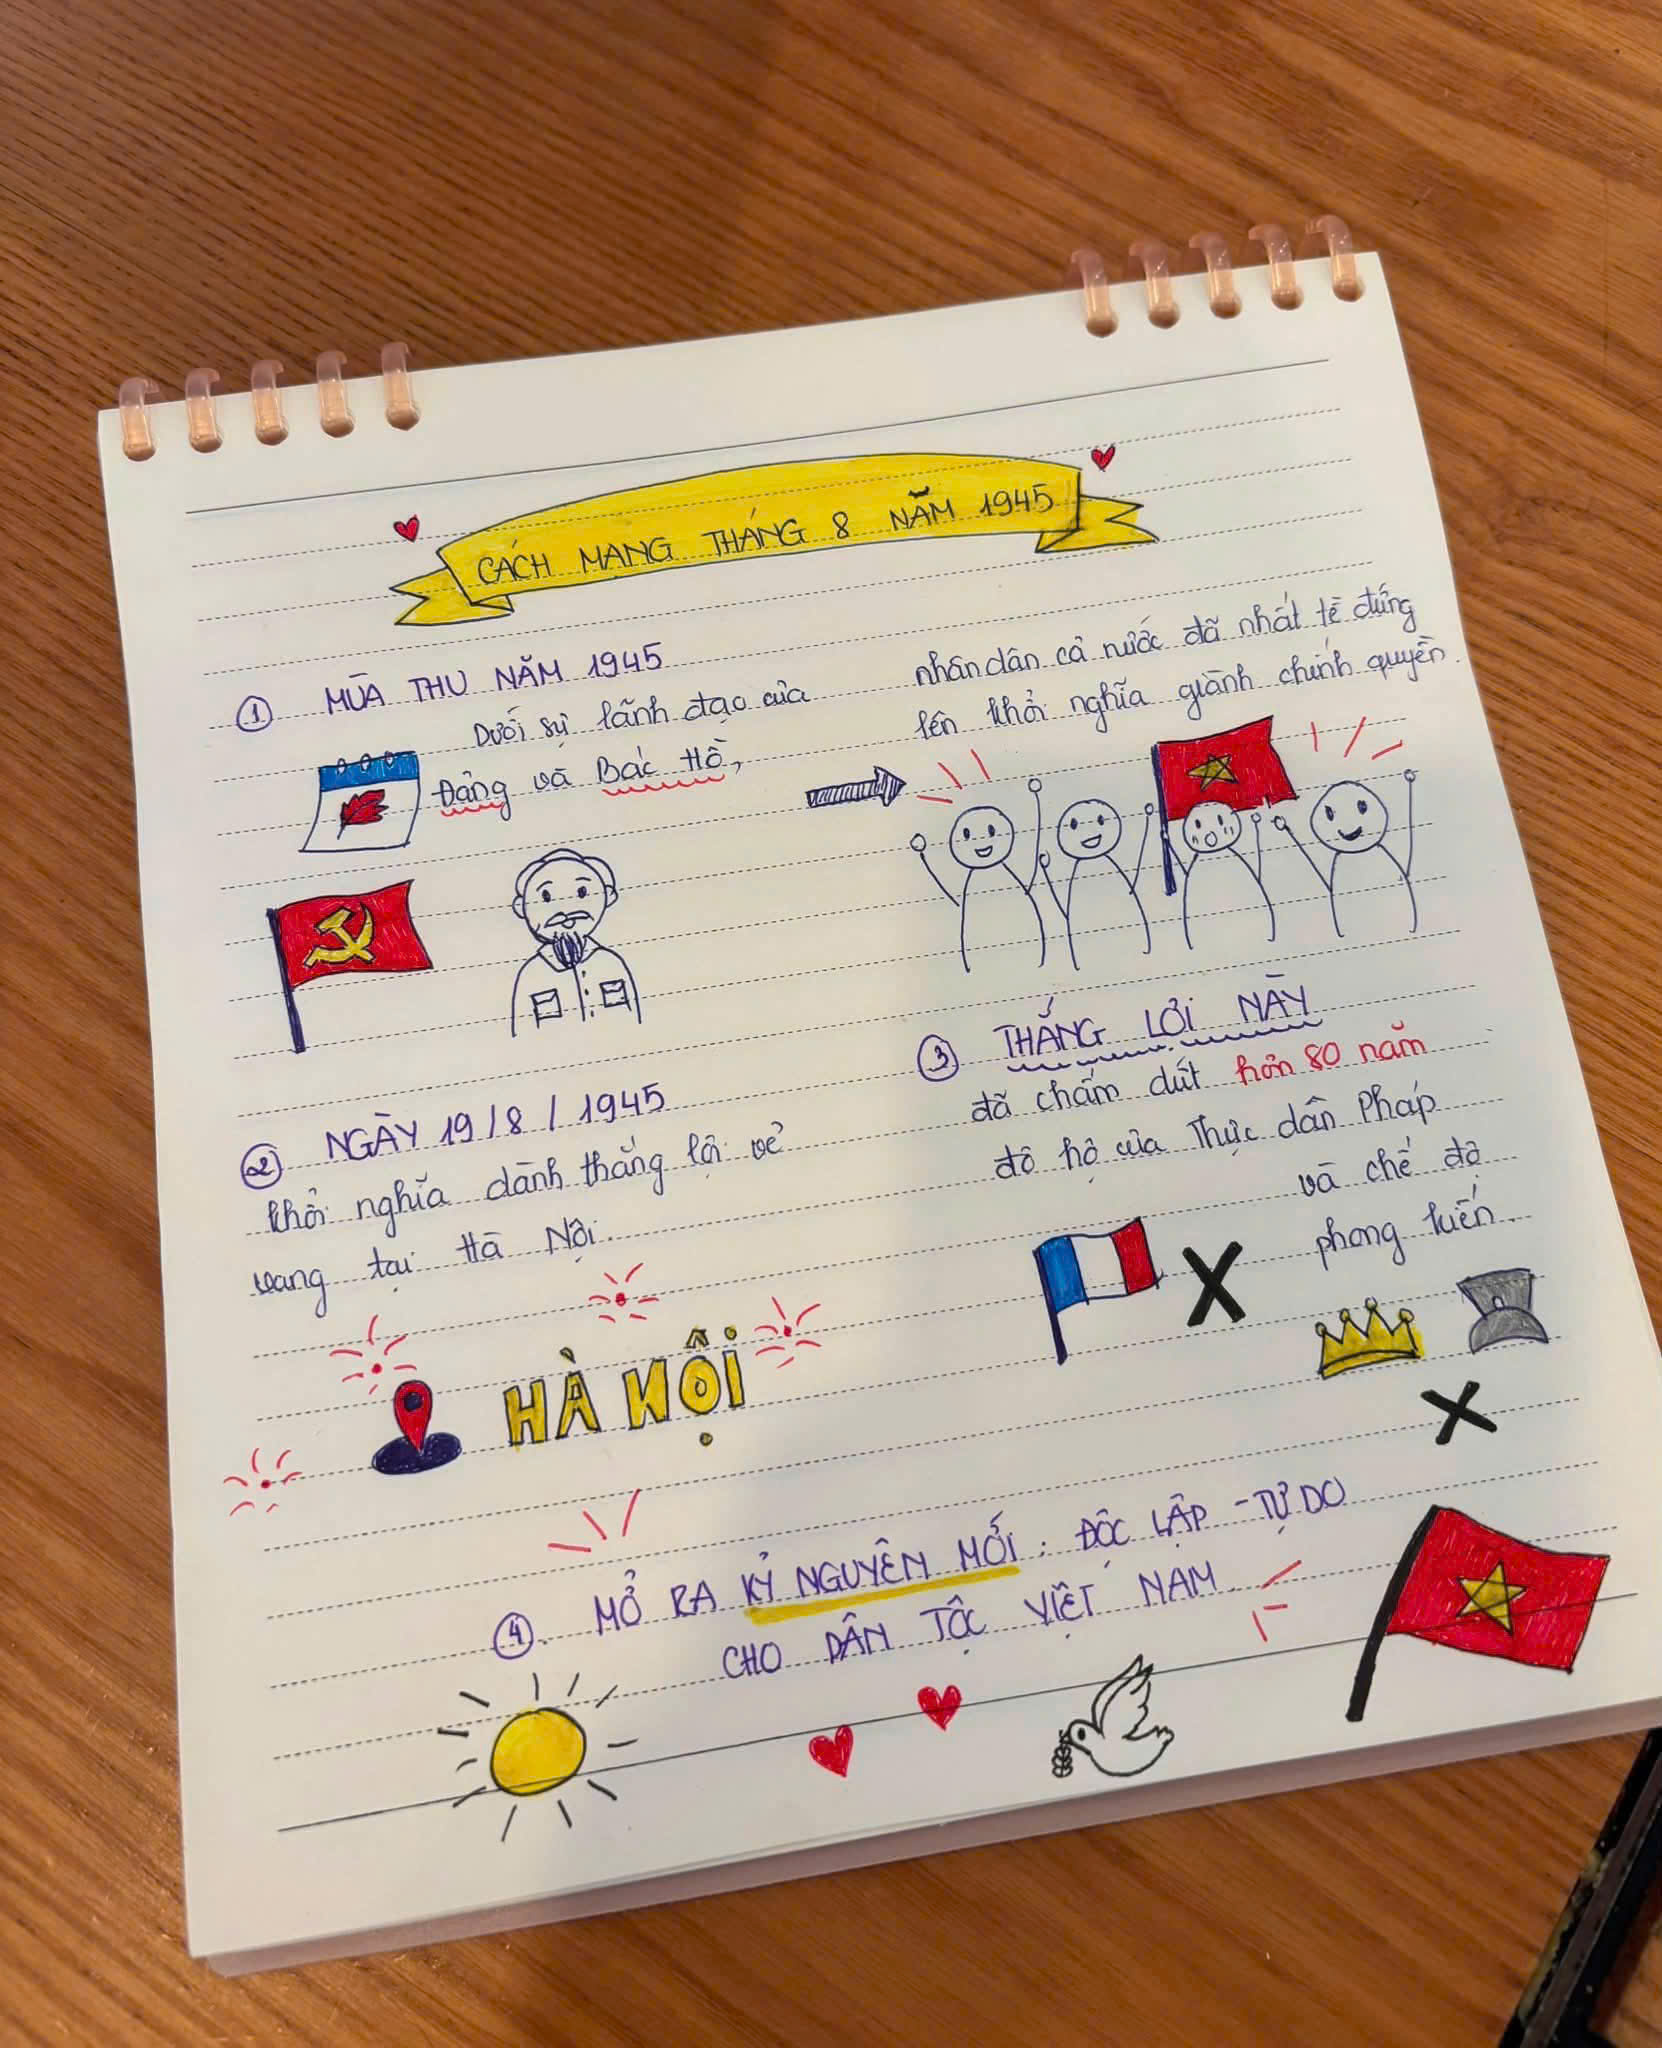 CÁCH MẠNG THÁNG 8 NĂM 1945
1 MÙA THU NĂM 1945
Dưới sự lãnh đạo của
Đảng và Bác Hồ,
nhân dân cả nước đã nhất tề đứng
lên khởi nghĩa giành chính quyền.
2 NGÀY 19/8/1945
khởi nghĩa dành thắng lợi vẻ
vang tại Hà Nội.
HÀ NỘI
3 THẮNG LỢI NÀY
đã chấm dứt hơn 80 năm
đô hộ của Thực dân Pháp
và chế độ
phong kiến.
4. MỞ RA KỶ NGUYÊN MỚI: ĐỘC LẬP - TỰ DO
CHO DÂN TỘC VIỆT NAM.